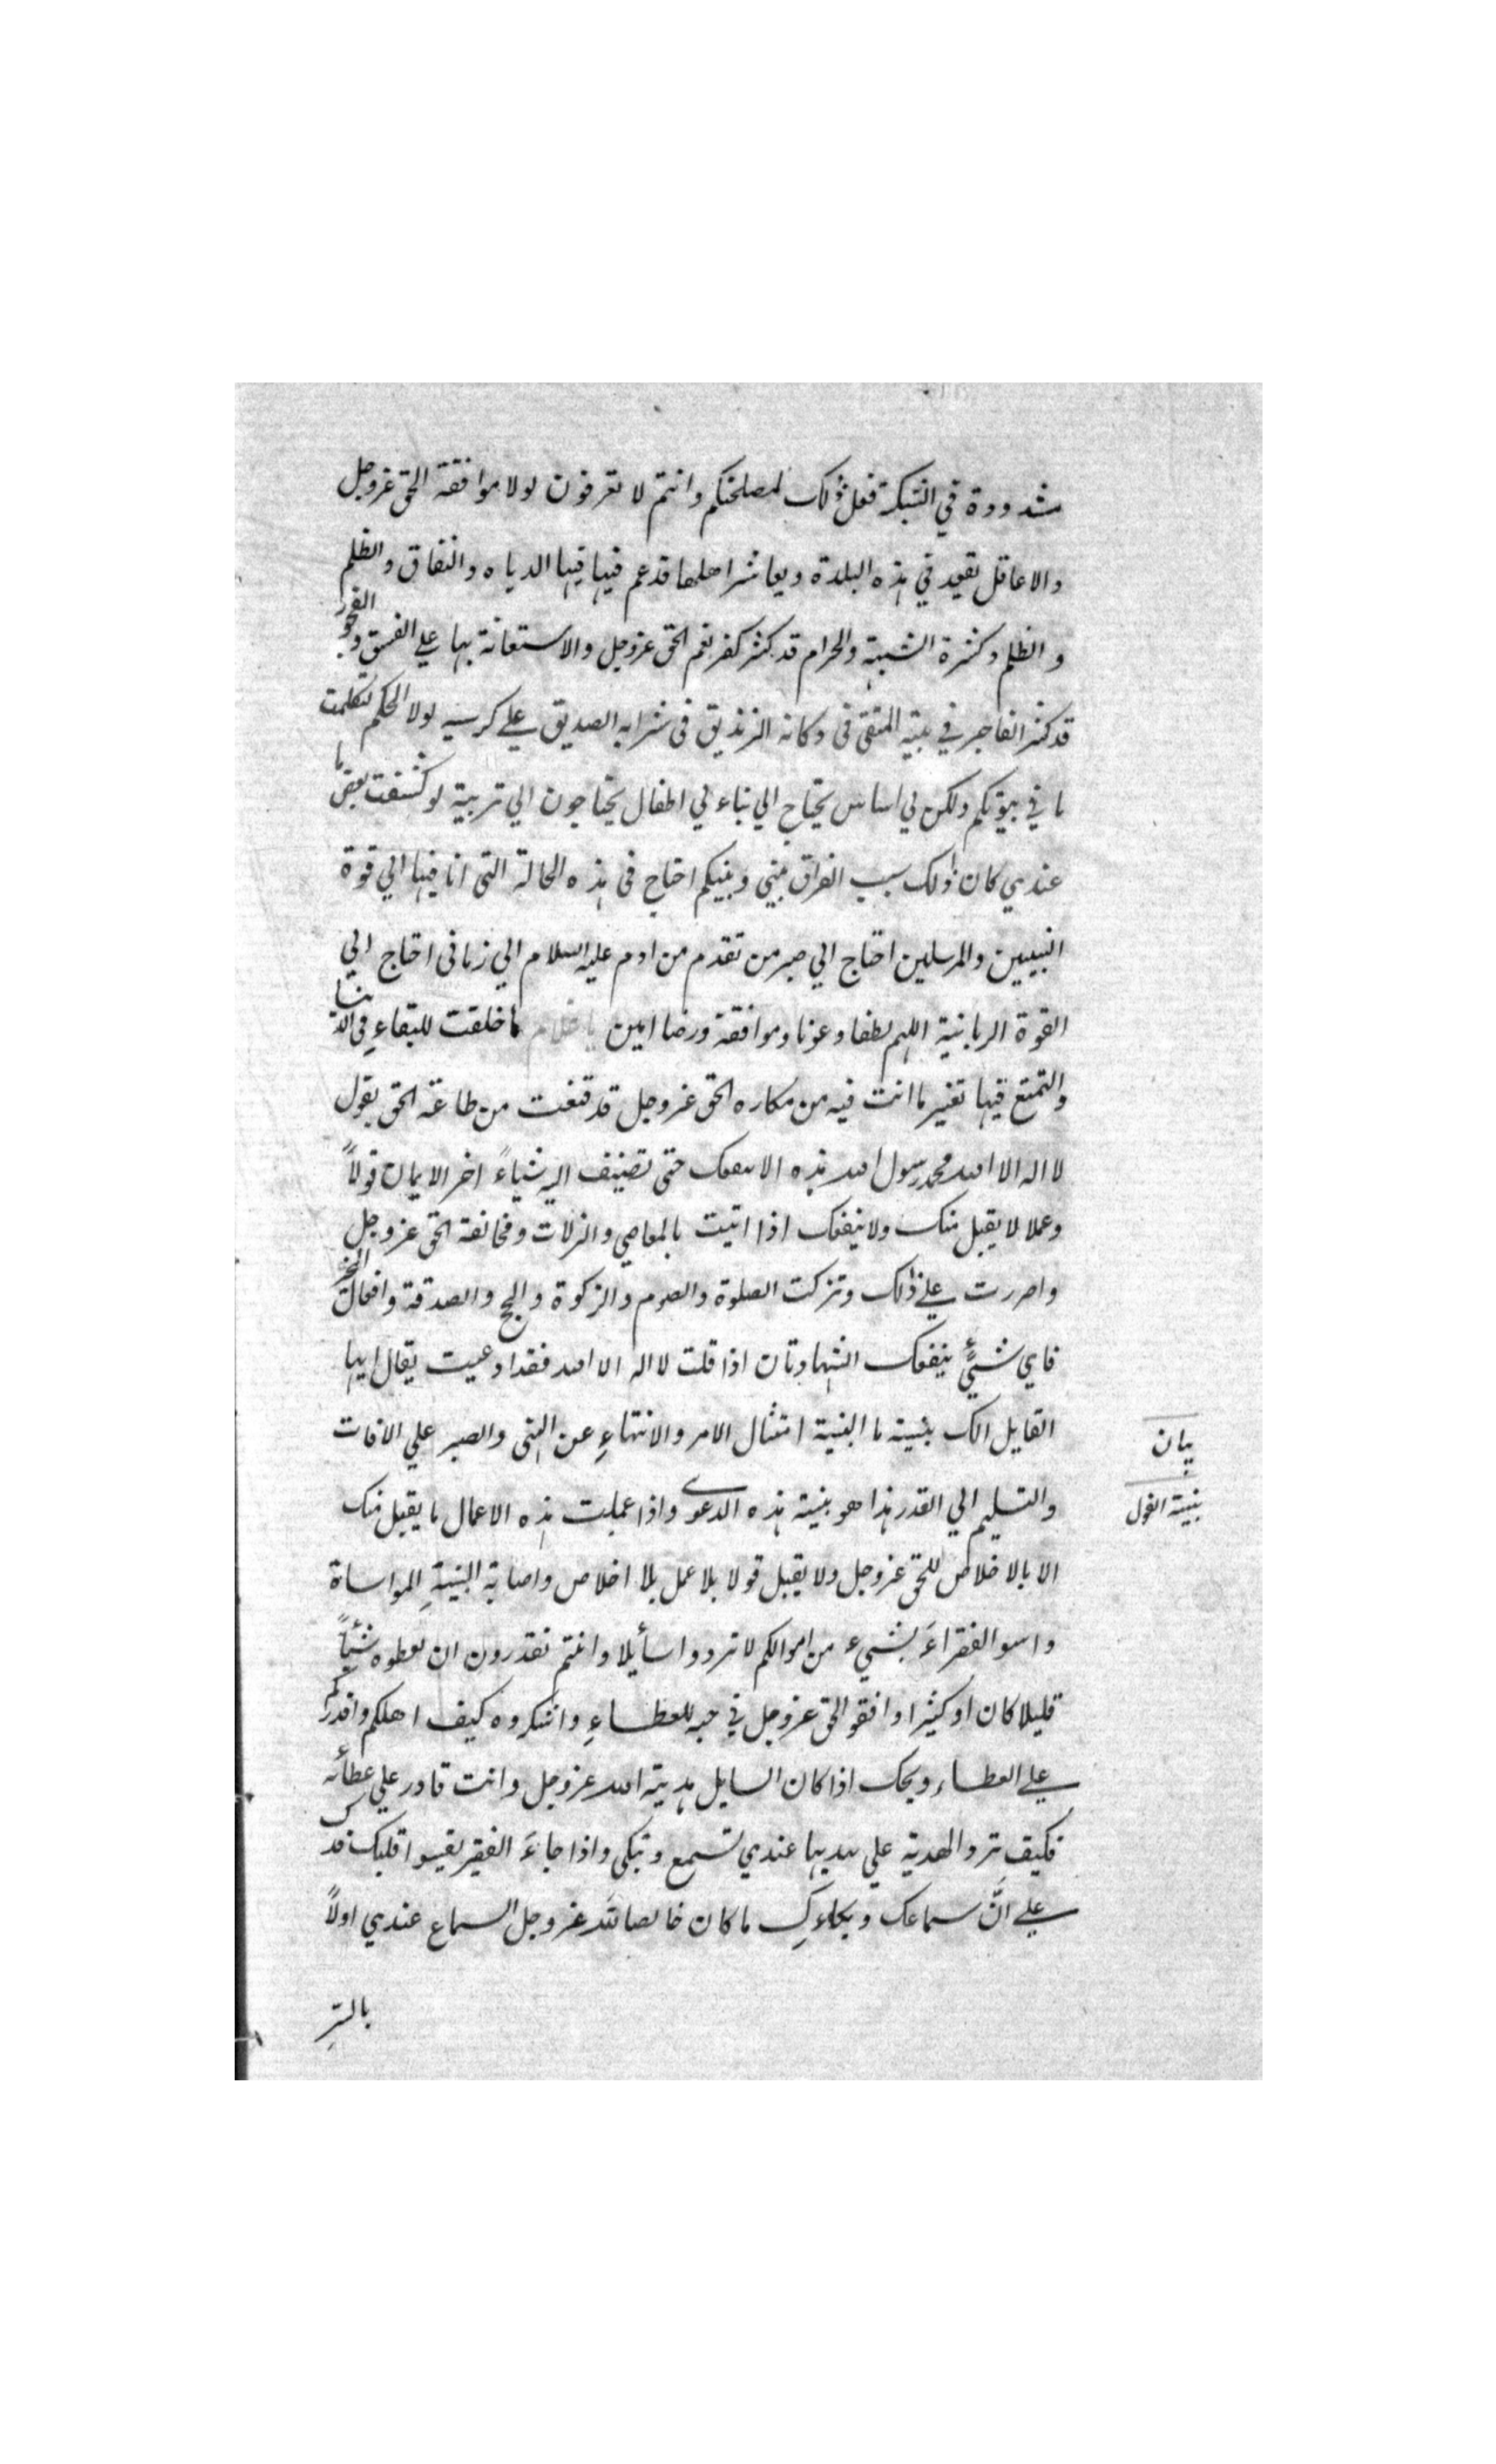 مشدودة في الشبكة فعل ذلك لمصلحتكم وانتم لا تعرفون لولا موافقة الحق عزوجل
والا عاقل يقعد في هذه البلدة ويعاشر اهلها قد عم فيها فيها الرياء والنفاق والظلم
والظلم وكثرة الشبهة والحرام قد كثر كفر نعم الحق عزوجل والاستعانة بها علي الفسق والفجور
قد كثر الفاجر في بيته المتقي في دكانه الزنديق في شرابه الصديق علي كرسيه لولا الحكم لتكلمت
ما في بيوتكم ولكن لي اساس يحتاج الي بناء لي اطفال يحتاجون الي تربية لو كشفت بعض ما
عندي كان ذلك سبب الفراق بيني وبينكم احتاج في هذه الحالة التي انا فيها الي قوة
النبيين والمرسلين احتاج الي صبر من تقدم من ادم عليه السلام الي زماني احتاج الي
القوة الربانية اللهم لطفا وعونا وموافقة ورضا امين يا غلام ما خلقت للبقاء في الدنيا
والتمتع فيها تغير ما انت فيه من مكاره الحق عزوجل قد قنعت من طاعة الحق بقول
لا اله الا الله محمد رسول الله هذه الا ينفعك حتى تضيف اليه شياءً اخر الايمان قولاً
وعملا لا يقبل منك ولا ينفعك اذا اتيت بالمعاصي والزلات ومخالفة الحق عزوجل
واصررت علي ذلك وتركت الصلوة والصوم والزكوة والحج والصدقة وافعال الخير
فاي شيئٍ ينفعك الشهادتان اذا قلت لا اله الا الله فقد ادعيت يقال ايها
القايل الك بينة ما البينة امتثال الامر والانتهاءِ عن النهي والصبر علي الافات
والتسليم الي القدر هذا هو بينة هذه الدعوي واذا عملت هذه الاعمال ما يقبل منك
الا بالاخلاص للحق عزوجل ولا يقبل قولا بلا عمل بلا اخلاص واصابة السنة المواساة
واسوا الفقراءَ بشيء من اموالكم لا تردوا سأيلا وانتم تقدرون ان تعطوه شيئاً
قليلا كان او كثيرا وافقوا الحق عزوجل في حبه للعطاءِ واشكروه كيف اهلكم واقدركم
علي العطاء ويحك اذا كان السايل هدية الله عزوجل وانت قادر علي عطائه
فكيف ترد الهدية علي مهديها عندي تسمع وتبكي واذا جاءَ الفقير يقسوا قلبك فدل
علي انَّ سماعك وبكاءكِ ما كان خالصا لله عزوجل السماع عندي اولاً
بالسّرِ
بيان
بينة القول